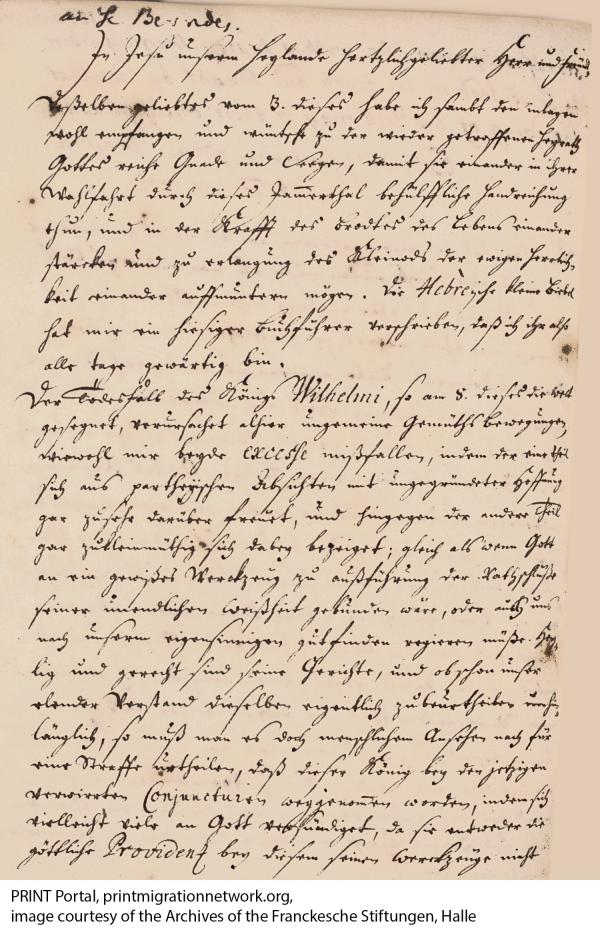 In Jesu unserm Heylande hertzlichgeliebter Herr und
Deßelben geliebtes vom 3. dieses habe ich sambt den inlagen
wohl empfangen und wüntsche zu der wieder getroffenen Heyrath
Gottes reiche Gnade und Seegen, damit sie einander in ihrer
Wahlfahrt durch dieses Jammerthal behülffliche Handreichung
thun, und in der Krafft des Brodtes des Lebens einander
stärcken und zu erlangung des Kleinods der ewigen Herrlich-
keit einander auffmuntern mögen. Die Hebreische kleine Bibel
hat mir ein hiesiger Buchführer verschrieben, daß ich ihr also
alle tage gewärtig bin.
Der Todesfall des Königs Wilhelmi, so am 8. dieses die welt
gesegnet, verursachet alhier ungemeine Gemüths bewegungen,
wiewohl mir beyde excesse mißfallen, indem der eine theil
sich aus partheyischen Absichten mit ungegründeter Hoffnung
gar zusehr darüber freuet, und hingegen der andere Theil
gar zukleinmüthig sich dabey bezeiget; gleich als wenn Gott
an ein gewißes Werckzeug zu außführung der Rathschlüße
seiner unendlichen weißheit gebunden wäre, oder auch uns
nach unserm eigensinnigen gutfinden regieren müße. Hey-
lig und gerecht sind seine Gerichte, und ob schon unser
elender Verstand dieselben eigentlich zubeurtheilen unzu-
länglich, so muß man es doch menschlichem Ansehen nach für
eine Straffe urtheilen, daß dieser König bey den jetzigen
verwirreten Conjuncturen weggenommen worden, indem sich
vielleicht viele an Gott versündiget, da sie entweder die
göttliche Providenz bey diesem seinen werckzeuge nicht
PRINT Portal, printmigrationnetwork.org,
image courtesy of the Archives of the Franckesche Stiftungen, Halle